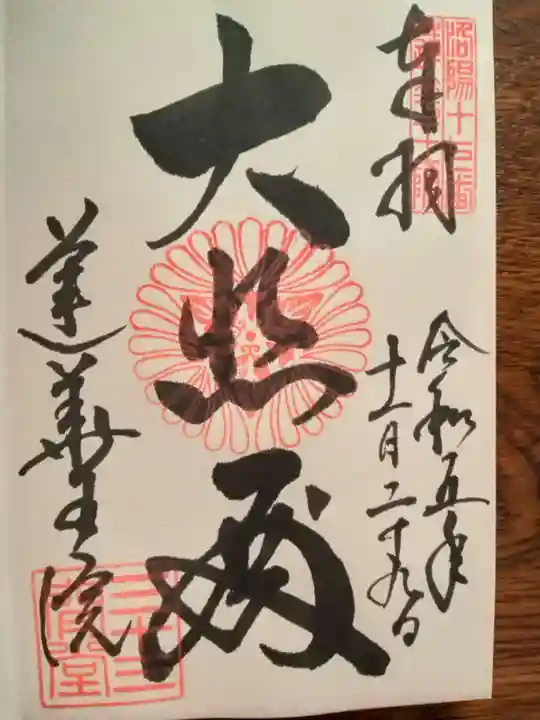 奉拝
洛陽十七番
令和五年
十一月二十九日
大悲殿
蓮華王院
三十三間堂